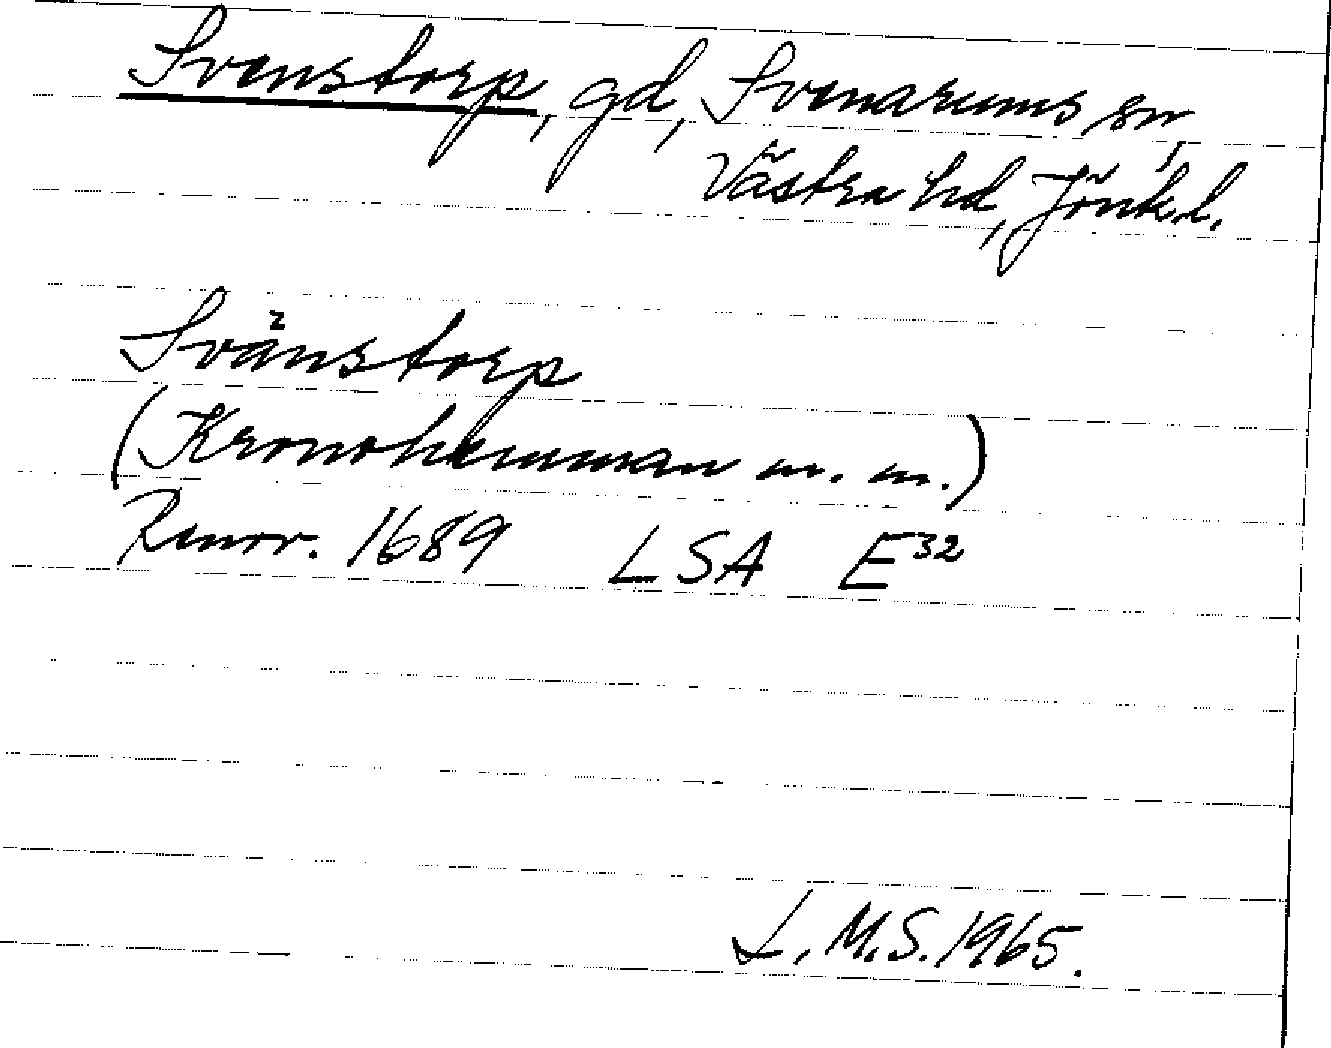 Svenstorp, gd, Svenarums sn,
Västra hd, Jönk.l.
Svänstorp
(Kronohemman m. m.)
Renov. 1689 LSA E32
L. M.S. 1965.